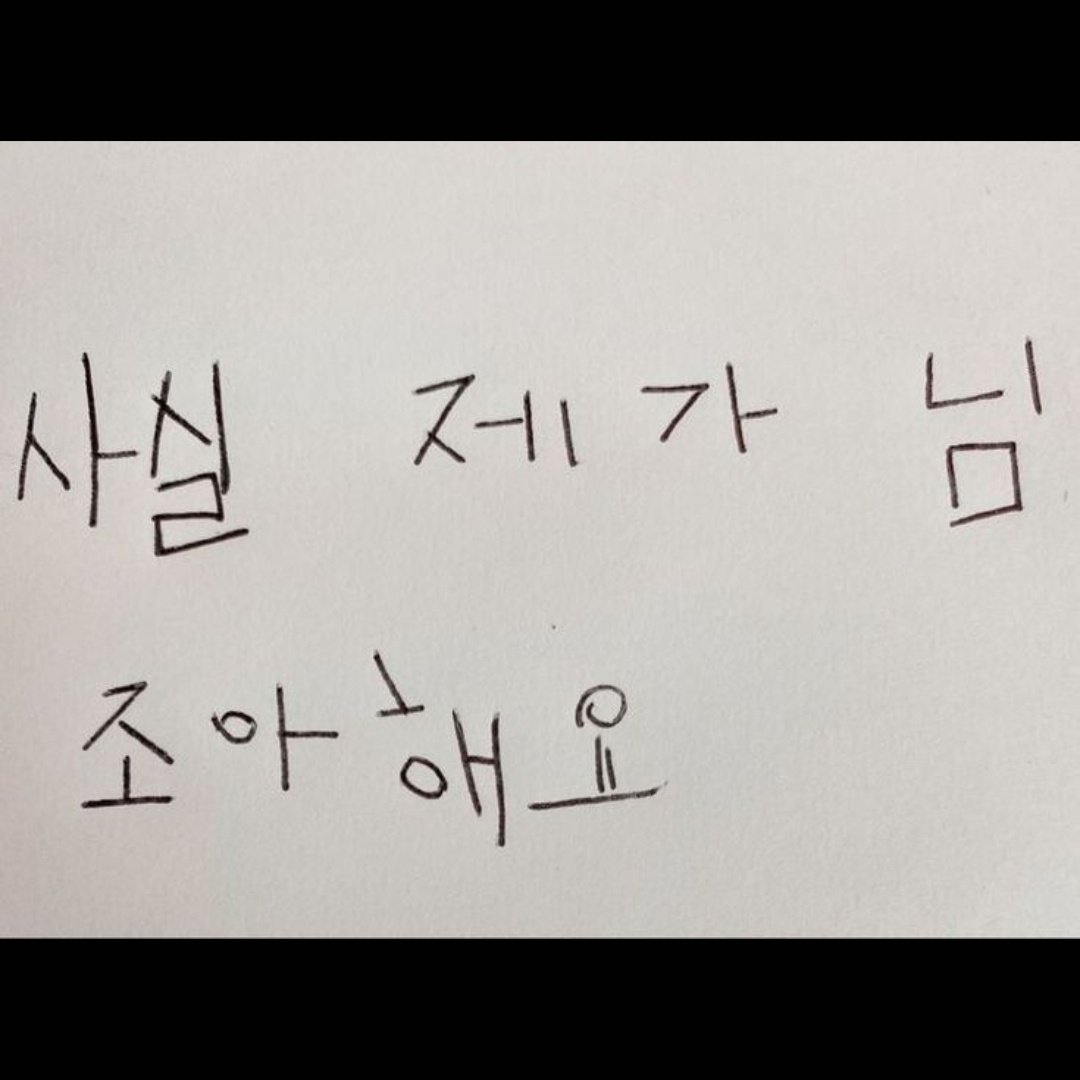 사실 제가 님
조아해요